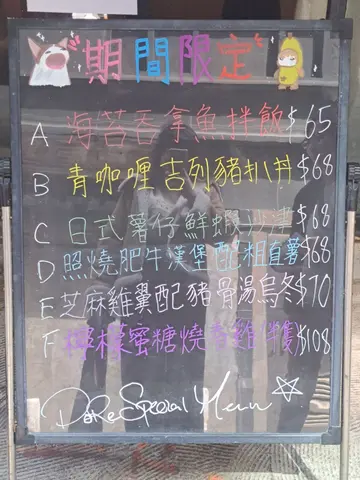 期間限定
A 海苔吞拿魚拌飯 $65
B 青咖喱吉列豬扒丼 $68
C 日式薯仔鮮蝦沙津 $68
D 照燒肥牛漢堡配粗直薯 $68
E 芝麻雞翼配豬骨湯烏冬 $70
F 檸檬蜜糖燒春雞伴隻 $108
Special Menu